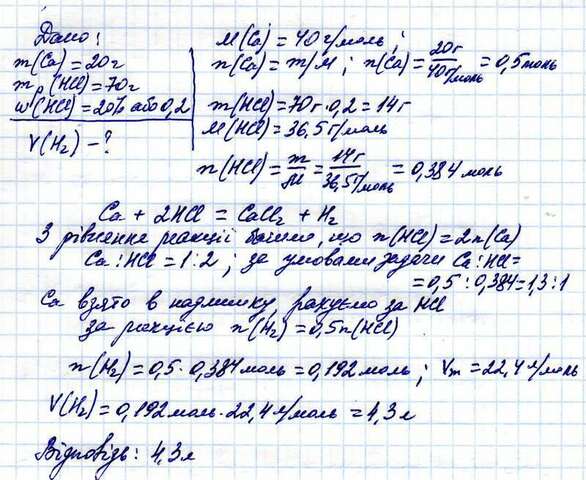 Дано:
m(Ca) = 20г
mр(HCl) = 70г
w(HCl) = 20% або 0,2
V(H₂) - ?
M(Ca) = 40 г/моль;
n(Ca) = m/M; n(Ca) = 20г/40г/моль = 0,5 моль
m(HCl) = 70г · 0,2 = 14г
M(HCl) = 36,5 г/моль
n(HCl) = m/M = 14г/36,5г/моль = 0,384 моль
Ca + 2HCl = CaCl₂ + H₂
З рівняння реакції бачимо, що n(HCl) = 2n(Ca)
Ca : HCl = 1 : 2; за умовами задачи Ca : HCl =
= 0,5 : 0,384 = 1,3 : 1
Ca взято в надлишку, рахуємо за HCl
за реакцією n(H₂) = 0,5n(HCl)
n(H₂) = 0,5 · 0,384 моль = 0,192 моль; Vm = 22,4 л/моль
V(H₂) = 0,192 моль · 22,4 л/моль = 4,3 л
Відповідь: 4,3 л